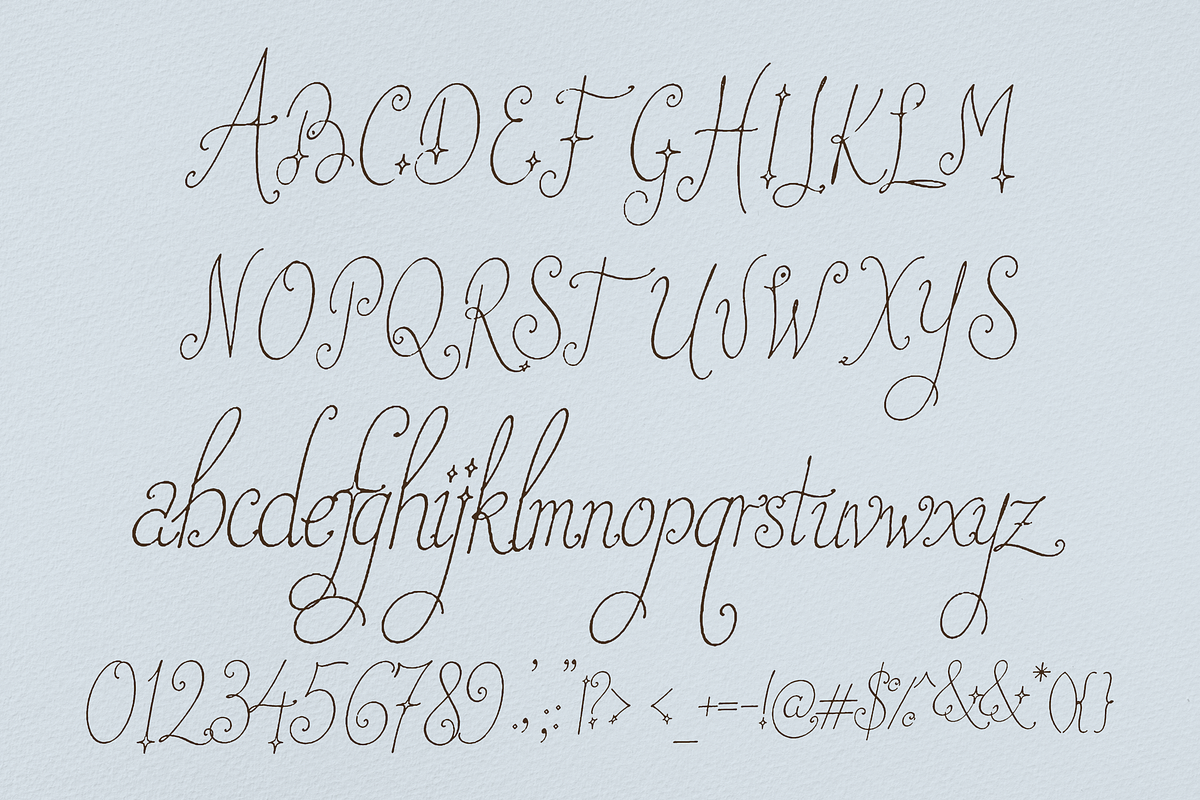 ABCDEFGHIJKLM
NOPQRSTUVWXYS
abcdefghijklmnopqrstuvwxyz
0123456789.,;:'"|?>&lt;_+=-!@#$%^&&*(){}